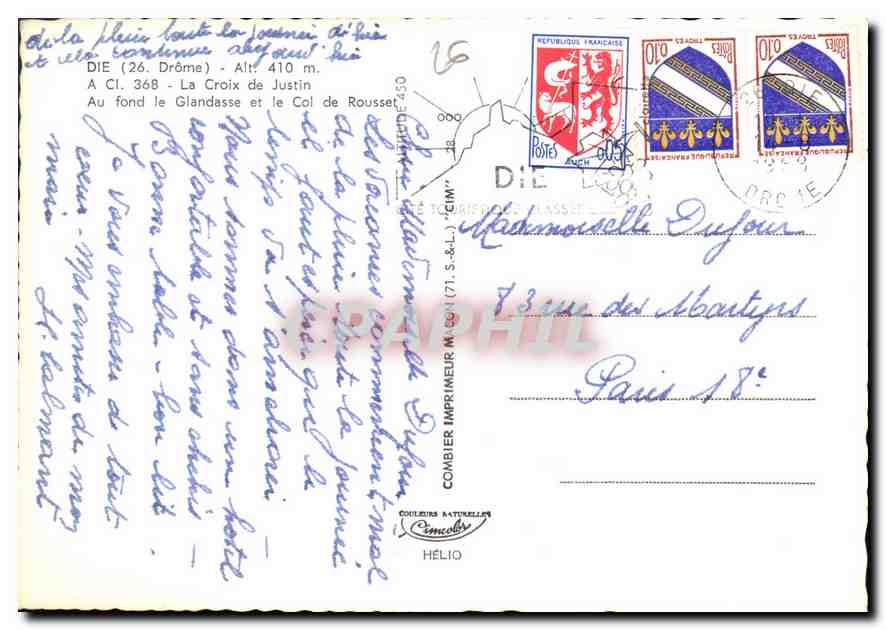 de la pluie toute la journée d'hier
et cela continue aujourd'hui
DIE (26. Drôme) - Alt. 410 m.
A Cl. 368 - La Croix de Justin
Au fond le Glandasse et le Col de Rousset
26
Chère Mademoiselle Dufour
Les vacances commencent mal
de la pluie toute la journée
il faut espérer que le
temps va s'améliorer
Nous sommes dans un hôtel
confortable et sans chichis -
Bonne table - bon lit -
Je vous embrasse de tout
cœur - Mes amitiés de mon
mari
COMBIER IMPRIMEUR MACON (71. S.-&-L.) "CIM"
COULEURS NATURELLES
Cimcolor
HÉLIO
REPUBLIQUE FRANÇAISE
POSTES
AUCH
0,05
TROYES
0,10
POSTES
REPUBLIQUE FRANÇAISE
TROYES
0,10
POSTES
REPUBLIQUE FRANÇAISE
ALTITUDE 450
DIE
DROME
Mademoiselle Dufour
83 rue des Martyrs
Paris 18e
CPAPHIL